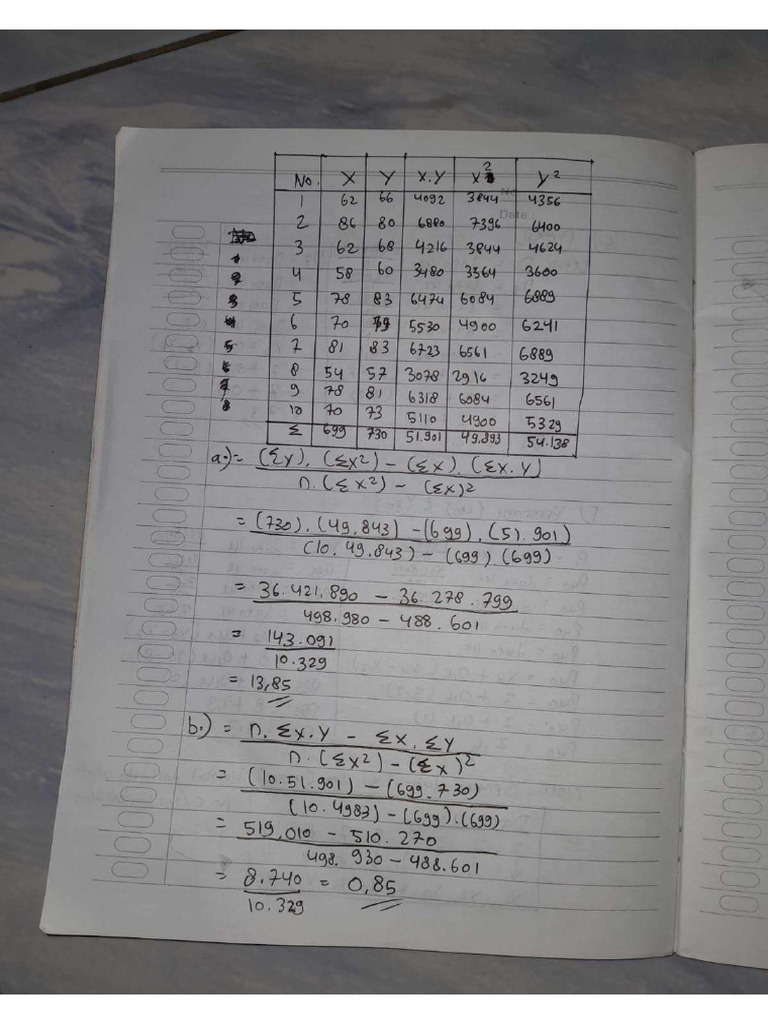 No. X Y X.Y X² Y²
1 62 66 4092 3844 4356
2 86 80 6880 7396 6400
Date
3 62 68 4216 3844 4624
4 58 60 3480 3364 3600
5 78 83 6474 6084 6889
6 70 79 5530 4900 6241
7 81 83 6723 6561 6889
8 54 57 3078 2916 3249
9 78 81 6318 6084 6561
10 70 73 5110 4900 5329
Σ 699 730 51.901 49.893 54.138
a.) = (Σy). (Σx²) - (Σx). (Σx.y)
n.(Σx²) - (Σx)²
= (730). (49.843) - (699). (51.901)
(10. 49.843) - (699) (699)
= 36.421.890 - 36.278.799
498.980 - 488.601
= 143.091
10.329
= 13,85
b.) = n. Σx.y - Σx. Σy
n. (Σx²) - (Σx)²
= (10.51.901) - (699.730)
(10.4983) - (699).(699)
= 519,010 - 510.270
498.930 - 488.601
= 8.740 = 0,85
10.329